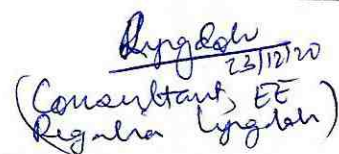 Lyngdoh
23/12/20
(Consultant, EE
Regalia Lyngdoh)